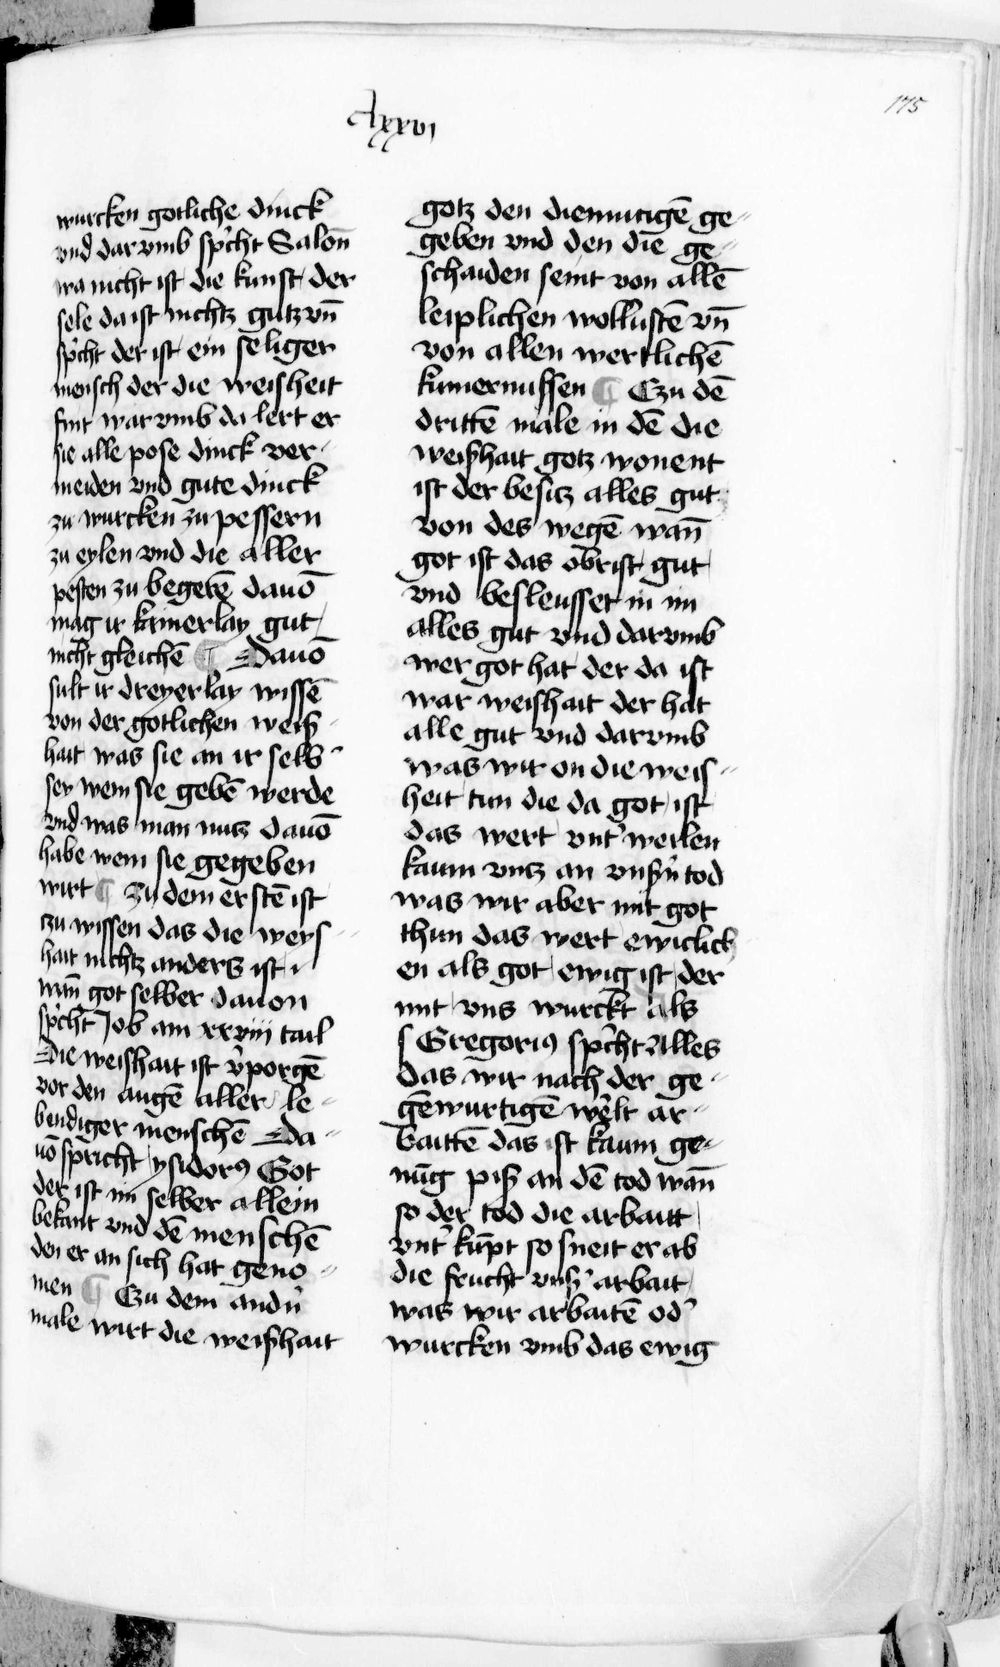 cxxvi
175
wurcken gotliche dinck
vnd darvmb sp̾cht Salon̄
wa nicht ist die kunst der
sele da ist nichtz gutz vn̄
sp̾cht der ist ein seliger
mensch der die weisheit
fint warvmb da lert er
sie alle pose dinck ver-
meiden vnd gute dinck
zu wurcken zu pessern
zu eylen vnd die aller
pesten zu begerē dauō
mag ir kainerlay gut
nicht gleichē ¶ Dauō
sult ir dreyerlay wissē
von der gotlichen weiß-
hait was sie an ir selbs
sey wem sie gebē werde
vnd was man nutz dauō
habe wem sie gegeben
wirt ¶ zu dem erstē ist
czu wissen das die weys-
hait nichtz anders ist
wan̄ got selber dauon
sp̾cht Job am xxviij tail
Die weishait ist v̾porgē
vor den augē aller le-
bendiger menschē Da-
uō spricht ysidorꝰ Got
der ist im selber allein
bekant vnd dē menschē
den er an sich hat geno-
men ¶ Czu dem andn̾
male wirt die weißhait
gotz den diemutigē ge-
geben vnd den die ge-
schaiden seint von allē
leiplichen wollustē vn̄
von allen wertlichē
kumernussen ¶ Czu dē
drittē male in dē die
weißhait gotz wonent
ist der besitz alles gut
von des wegē wan̄
got ist das obrist gut
vnd besleusset in im
alles gut vnd darvmb
wer got hat der da ist
war weishait der hat
alle gut vnd darvmb
was wir on die weis-
heit tun die da got ist
das wert vnt̾ weilen
kaum vntz an vnsn̾ tod
was wir aber mit got
thun das wert ewiclich
en als got ewig ist der
mit vns wurckt als
s Gregoriꝰ sp̾cht Alles
das wir nach der ge-
gēwurtigē welt ar-
baittē das ist kaum ge-
nūg piß an dē tod wan̄
so der tod die arbaitt
vnt̾ kūpt so sneit er ab
die frucht vnß̾ arbait
was wir arbaitē od̾
wurcken vmb das ewig